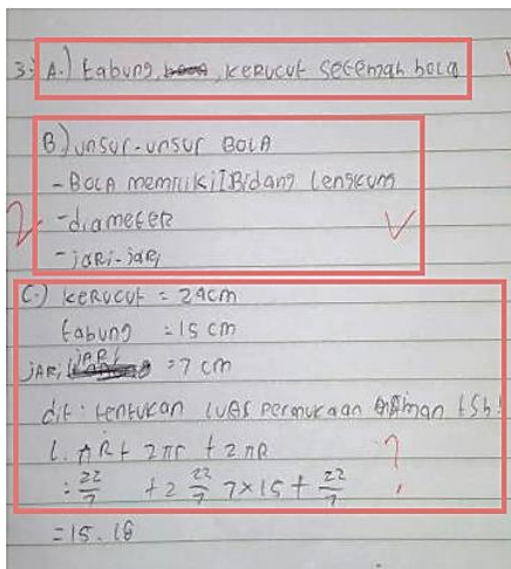 3. A.) tabung, kerucut setengah bola
B) unsur-unsur BOLA
- BOLA memiliki 1 Bidang lengkung
- diameter
- jari-jari
2
C.) kerucut = 24cm
tabung = 15 cm
jari jari = 7 cm
dit : tentukan luas permukaan tsb!
L. πR + 2πr + 2πR ?
: 22/7 + 2 22/7 7×15 + 22/7
= 15.18